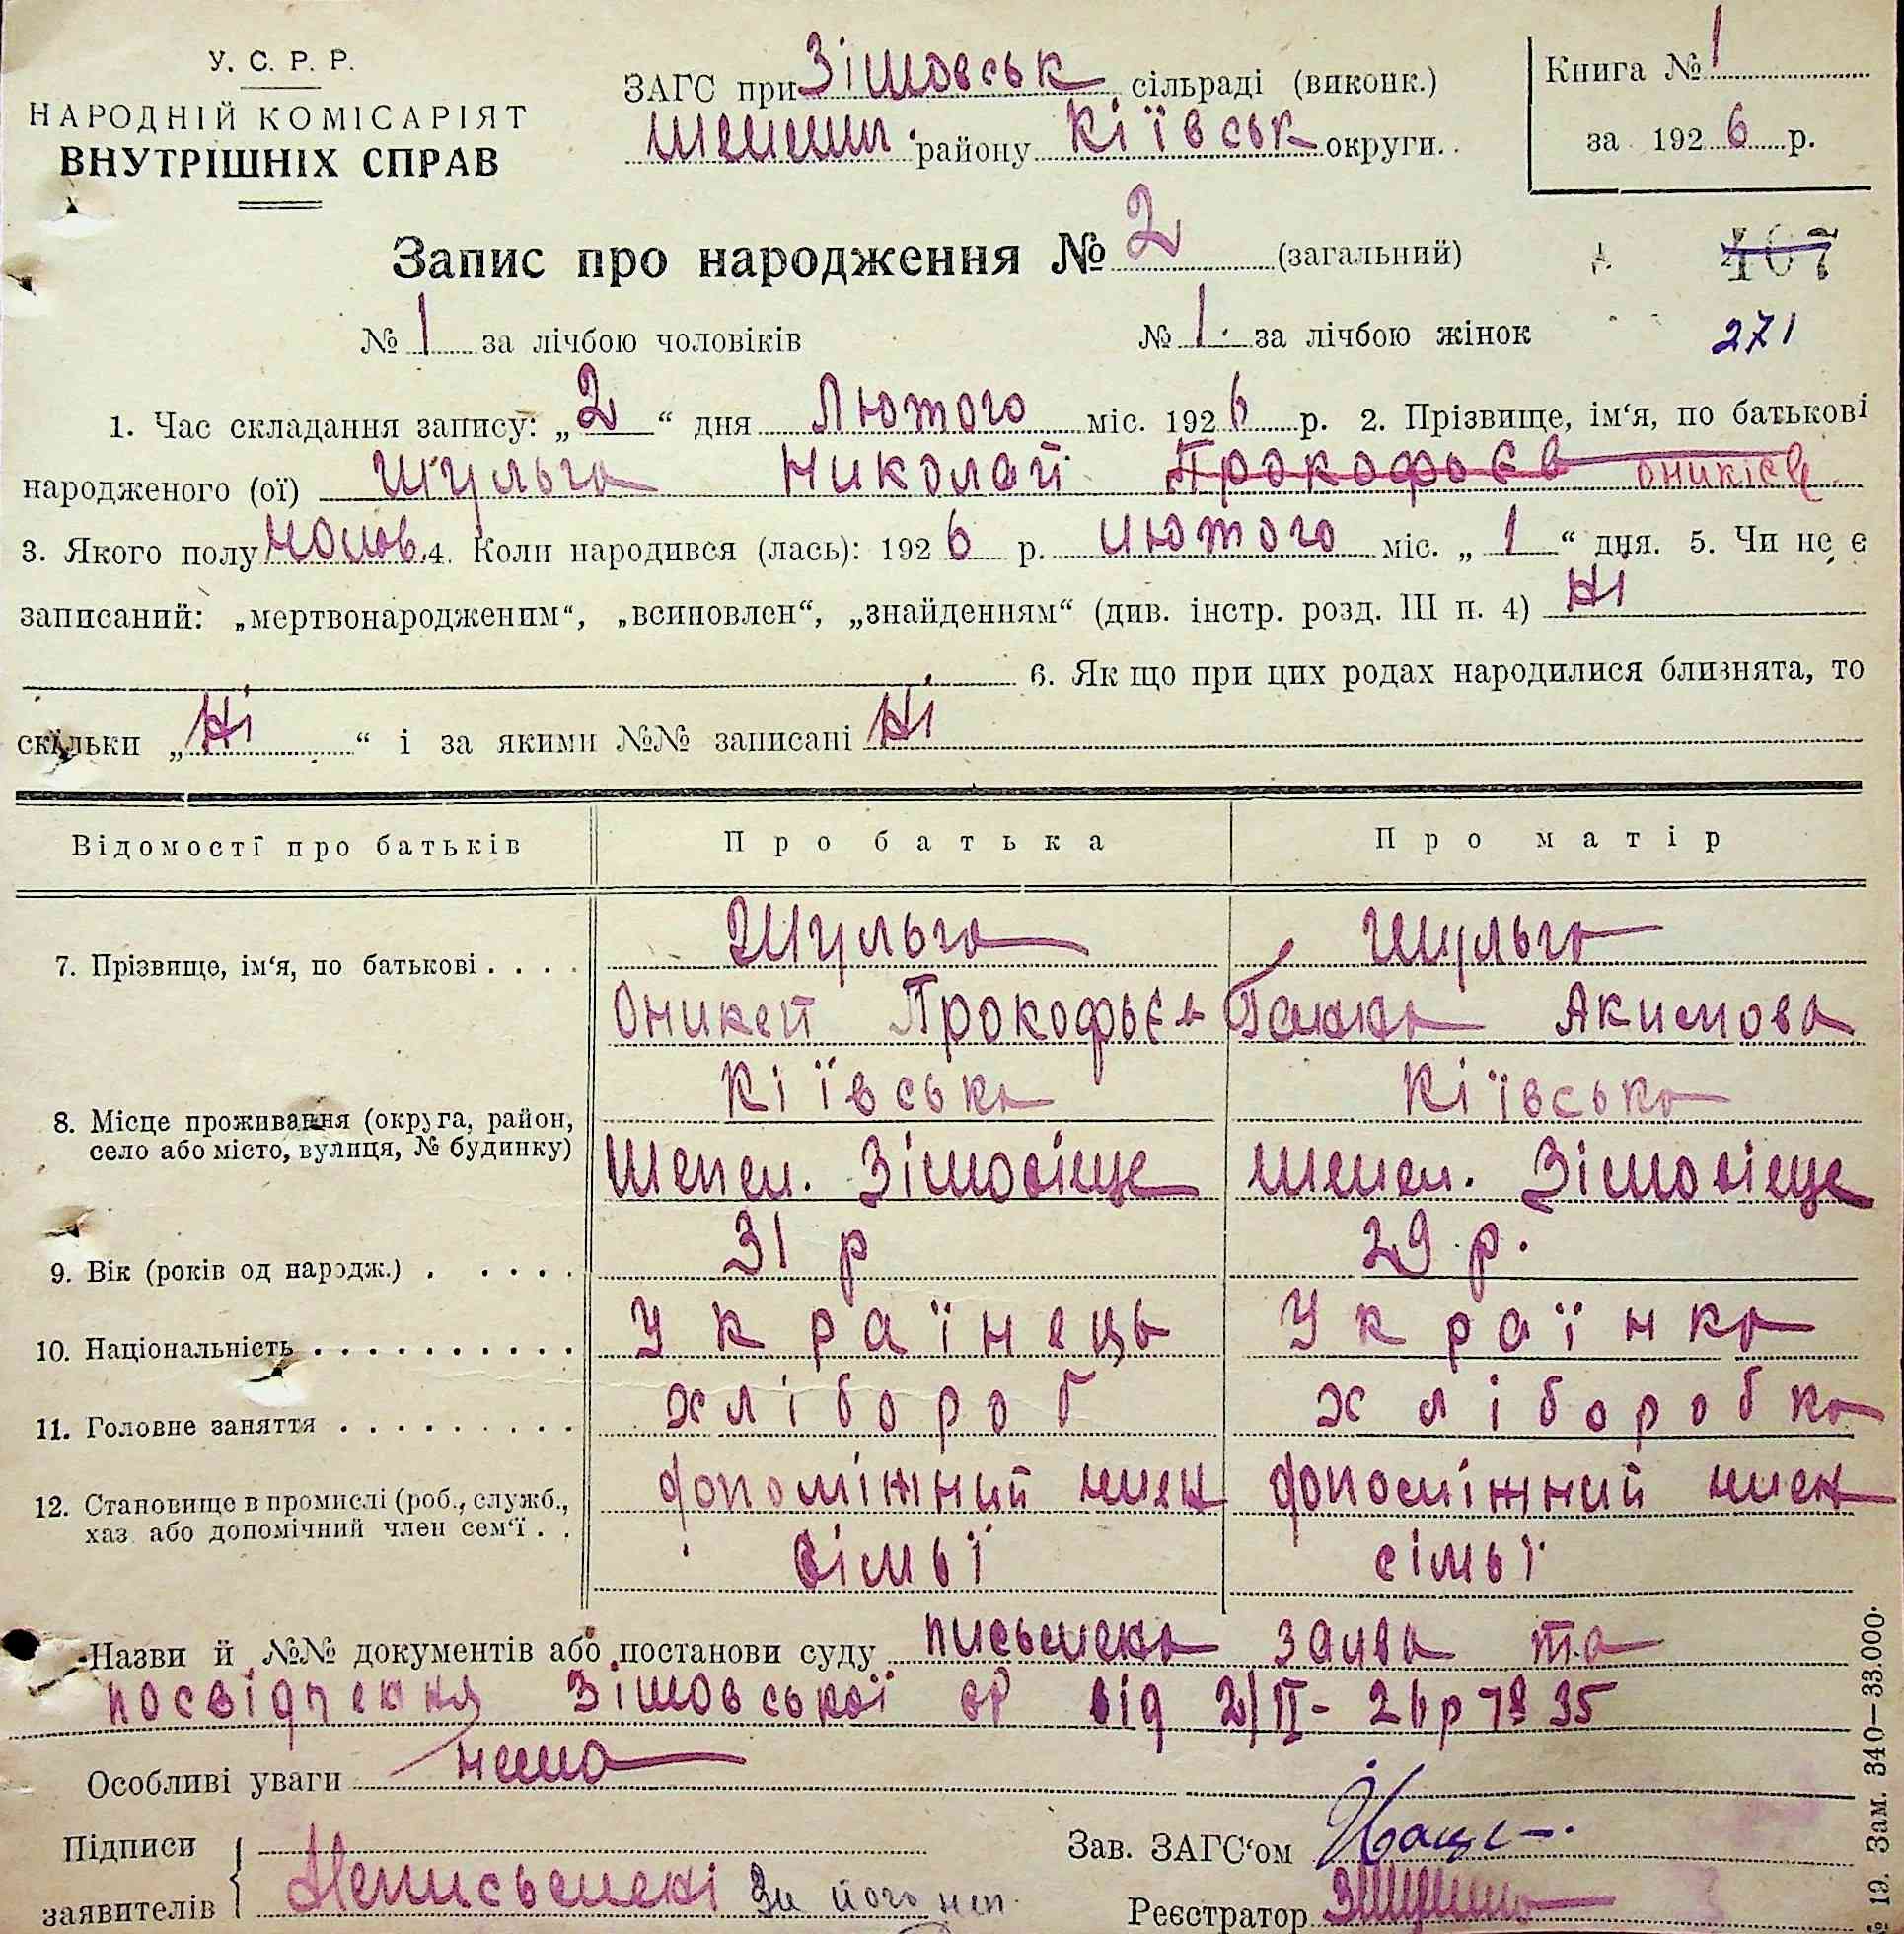 У. С. Р. Р.
НАРОДНІЙ КОМІСАРІЯТ
ВНУТРІШНІХ СПРАВ
ЗАГС при Зімовськ сільраді (виконк.)
району Кіївськ округи.
Книга № 1
за 1926 р.
Запис про народження № 2 (загальний)
407
№ 1 за лічбою чоловіків № 1. за лічбою жінок
271
1. Час складання запису: „2“ дня Лютого міс. 1926 р. 2. Прізвище, ім‘я, по батькові
народженого (ої) Шульга Николай Прокофьєв оникієв
3. Якого полу чолов. 4. Коли народився (лась): 1926 р. лютого міс. „1“ дня. 5. Чи не є
записаний: „мертвонародженим“, „всиновлен“, „знайденням“ (див. інстр. розд. III п. 4) Ні
6. Як що при цих родах народилися близнята, то
скільки „Ні“ і за якими №№ записані Ні
Відомості про батьків Про батька Про матір
7. Прізвище, ім‘я, по батькові . . . . Шульга Шульга
Оникей Прокофьєв Ганна Акимова
Кіївська Кіївська
8. Місце проживання (округа, район,
село або місто, вулиця, № будинку) Шепел. Зімовіще Шепел. Зімовіще
9. Вік (років од народж.) . . . . . 31 р 29 р.
10. Національність . . . . . . . . . . Українець Українка
11. Головне заняття . . . . . . . . . хлібороб хліборобка
12. Становище в промислі (роб., служб., допоміжний член допоміжний член
хаз. або допомічний член сем‘ї . . сімьї сімьї
Назви й №№ документів або постанови суду письмена заява та
посвідчення Зімовської ср від 2/II- 26р № 35
Особливі уваги нема
Підписи
заявителів Неписьмені За його неп.
Зав. ЗАГС‘ом
Реєстратор
№ 19. Зам. 340—33.000.